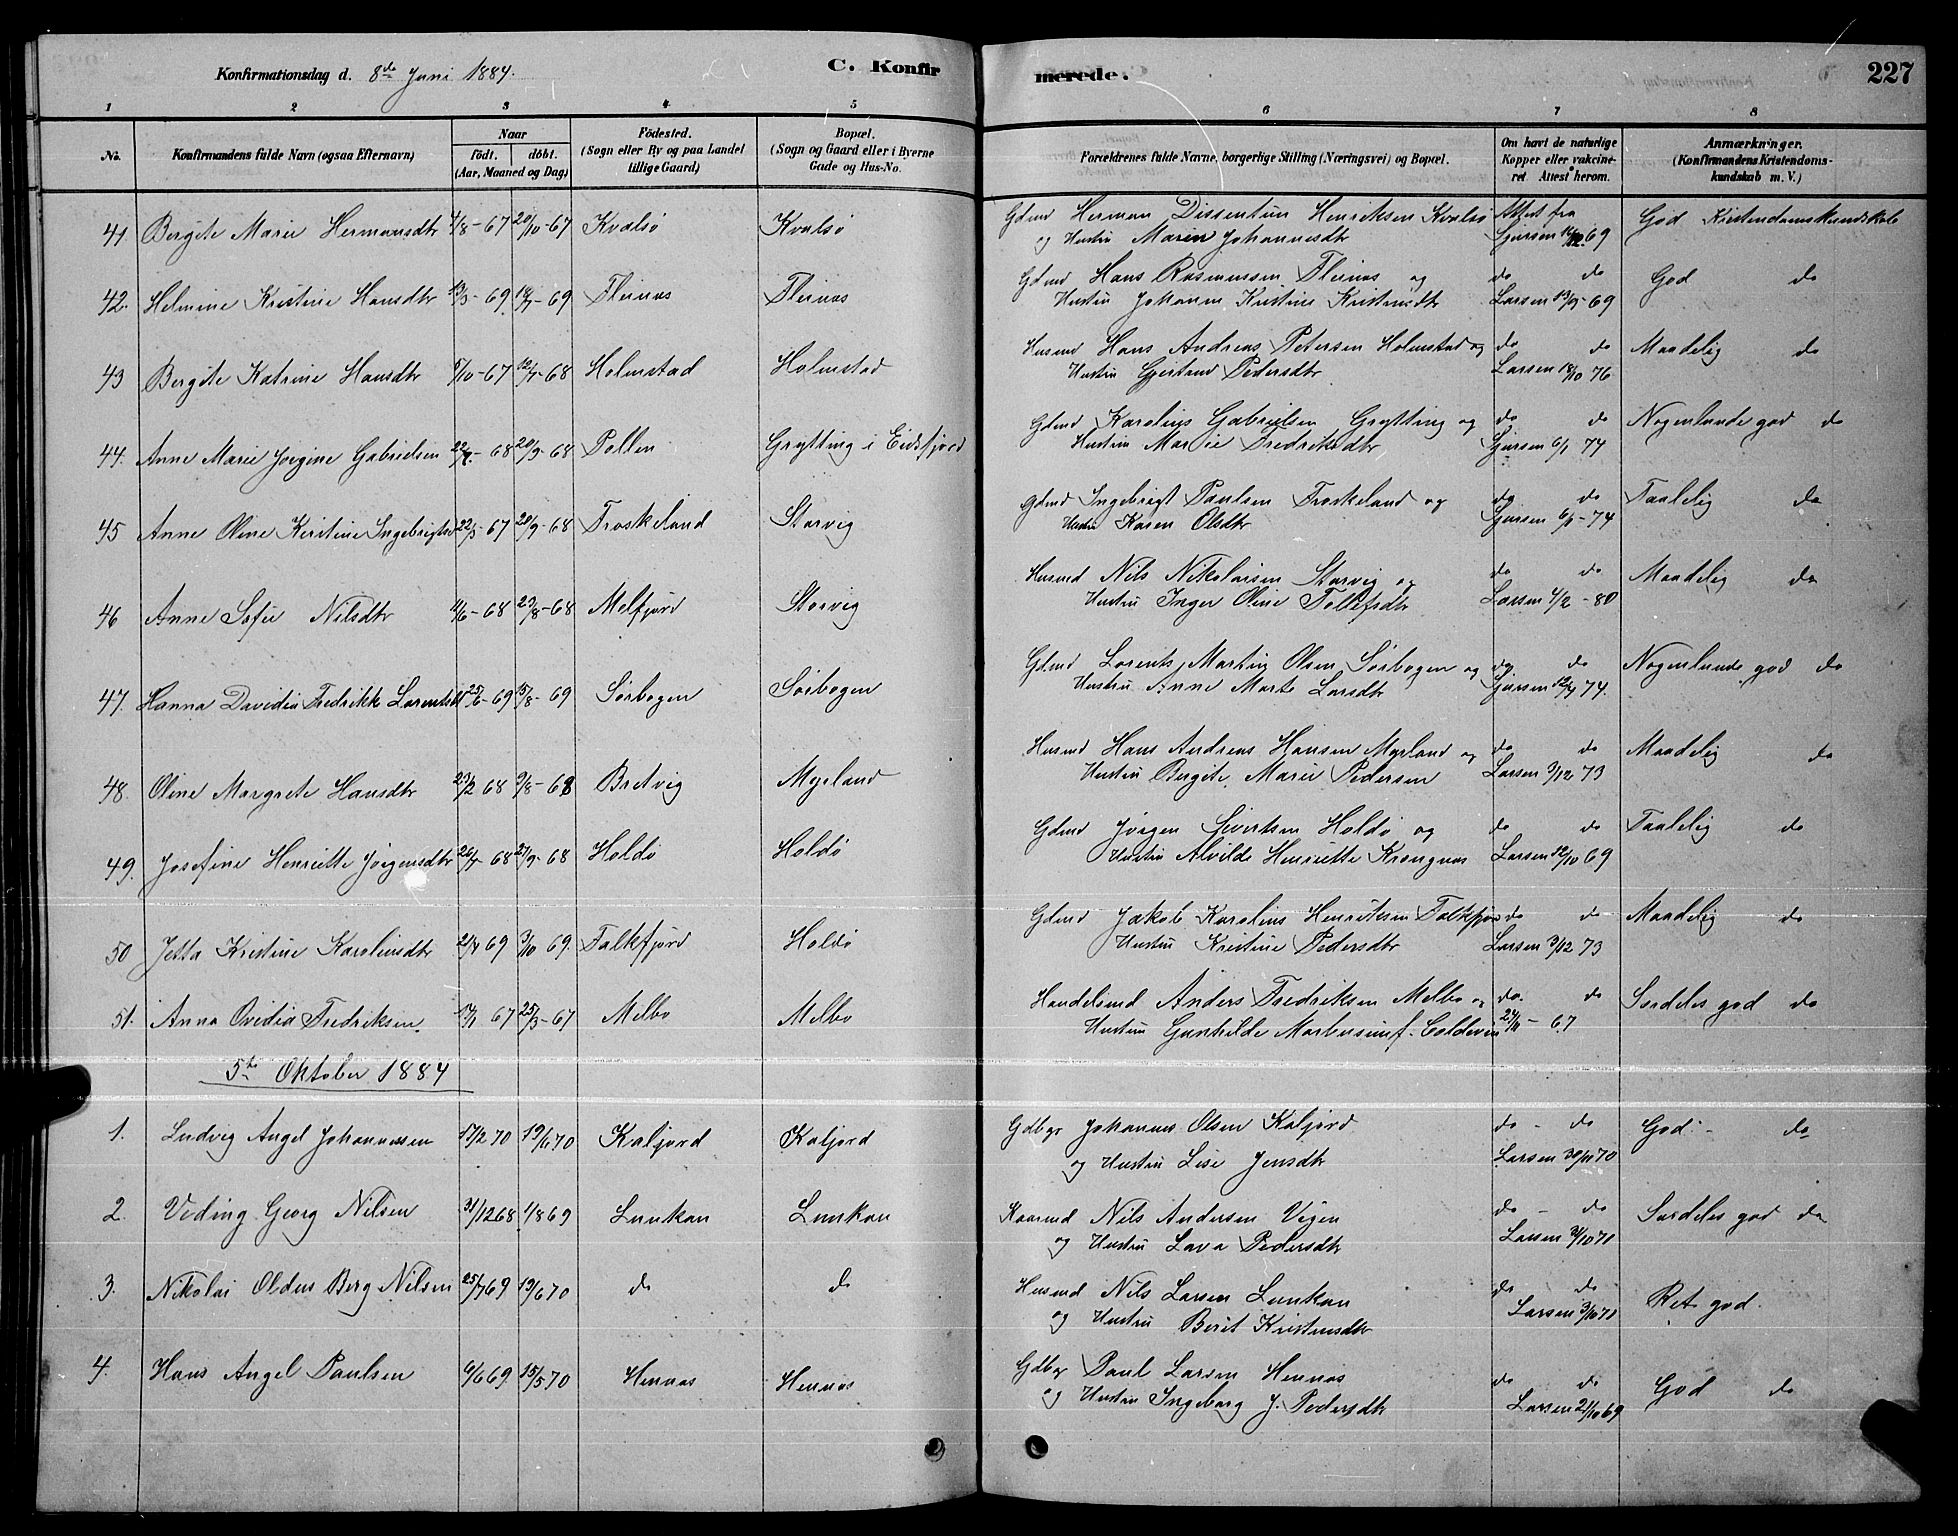 Konfirmationsdag d. 8de Juni 1884.
C. Konfirmerede.
227
1 2 3 4 5 6 7 8
No.
Konfirmandens fulde Navn (ogsaa Efternavn)
Naar
født. døbt.
(Aar, Maaned og Dag)
Födested.
(Sogn eller By og paa Landet
tillige Gaard)
Bopæl.
(Sogn og Gaard eller i Byerne
Gade og Hus-No.
Forældrenes fulde Navne, borgerlige Stilling (Næringsvei) og Bopæl.
Om havt de naturlige
Kopper eller vakcine-
ret. Attest herom.
Anmærkninger.
(Konfirmandens Kristendoms-
kundskab m. V.)
41. Bergite Marie Hermansdtr 4/8-67 20/10-67 Kvalsø Kvalsø Gdmd Herman Dissentun Henriksen Kvalsø Attest fra God Kristendomskundskab
og Hustru Maren Johannesdtr Sjursen 14/12 69
42. Helmine Kristine Hansdtr 13/3-69 18/7-69 Fleines Fleines Gdmd Hans Rasmussen Fleines og do do God do
Hustru Johanna Kristine Kristensdtr Larsen 13/9-69
43 Bergite Katrine Hansdtr 5/10-67 12/7-68 Holmstad Holmstad Husmd Hans Andreas Petersen Holmstad og do do Maadelig do
Hustru Gjertrud Pedersdtr Larsen 18/10 76
44. Anne Marie Jørgine Gabrielsen 22/7-68 20/9-68 Pollen Grytting i Eidsfjord Gdmd Karolius Gabrielsen Grytting og do do Nogenlunde god do
Hustru Marie Fredriksdtr Sjursen 6/1 74
45 Anne Oline Kristine Ingebrigtsd 22/5-67 20/9-68 Froskeland Storvig Gdmd Ingebrigt Paulsen Froskeland og do do Taalelig do
Hustru Karen Olsdtr Sjursen 6/1-74
46 Anne Sofie Nilsdtr 11/6-68 23/8-68 Melfjord Storvig Husmd Nils Nikolaisen Storvig og do do Maadelig do
Hustru Inger Oline Tollefsdtr Larsen 4/2-80
47. Hanna Davidia Fredrikke Lorentsdt 25/6-69 15/8-69 Sørbogen Sørbogen Gdmd Lorents Martin Olsen Sørbogen og do do Nogenlunde god do
Hustru Anne Marte Larsdtr Sjursen 12/4 74.
48. Oline Margrete Hansdtr 23/2 68 9/8-68 Bretvig Myrland Husmd Hans Andreas Hansen Myrland og do do Maadelig do
Hustru Bergite Marie Pedersen Larsen 3/12 73
49. Josefine Henriette Jørgensdtr 26/7 68 27/9-68 Holdø Holdø Gdmd Jørgen Sivertsen Holdø og do do Taalelig do
Hustru Alvilde Henriette Krongnes Larsen 12/10 69
50 Jetta Kristine Karoliusdtr 2/4 69 3/10 69. Falkfjord Holdø Gdmd Jakob Karolius Henriksen Falkfjor do do Maadelig do
Hustru Kristine Pedersdtr Larsen 3/12 73
51. Anna Ovidia Fredriksen. 17/1 67 25/3-67 Melbo Melbo Handelsmd Anders Fredriksen Melbo og do. do Særdeles god do
Hustru Gunhilde f. Coldevin 24/11-67
5te Oktober 1884
1. Ludvig Angel Johannessen 17/2 70 19/6 70 Kaljord Kaljord Gdbgr Johannes Olsen Kaljord do - do God - do
og Hustru Lise Jensdtr Larsen 30/11 70
2. Veding Georg Nilsen 31/12 68 1/8 69 Lunkan Lunkan Kaarmd Nils Andersen Vigen do - do Særdeles god do
og Hustru Lava Pedersdtr Larsen 3/10 71
3. Nikolai Olders Berg Nilsen 25/7 69 19/6 70 do do Husmd Nils Larsen Lunkan do do Ret god.
og Hustru Berit Kristensdtr Larsen 3/10 71
4. Hans Angel Paulsen 6/6 69. 15/5 70 Hennes Hennes Gdbgr Paul Larsen Hennes do do God do
og Hustru Ingeborg J. Pedersdtr Larsen 21/10 69